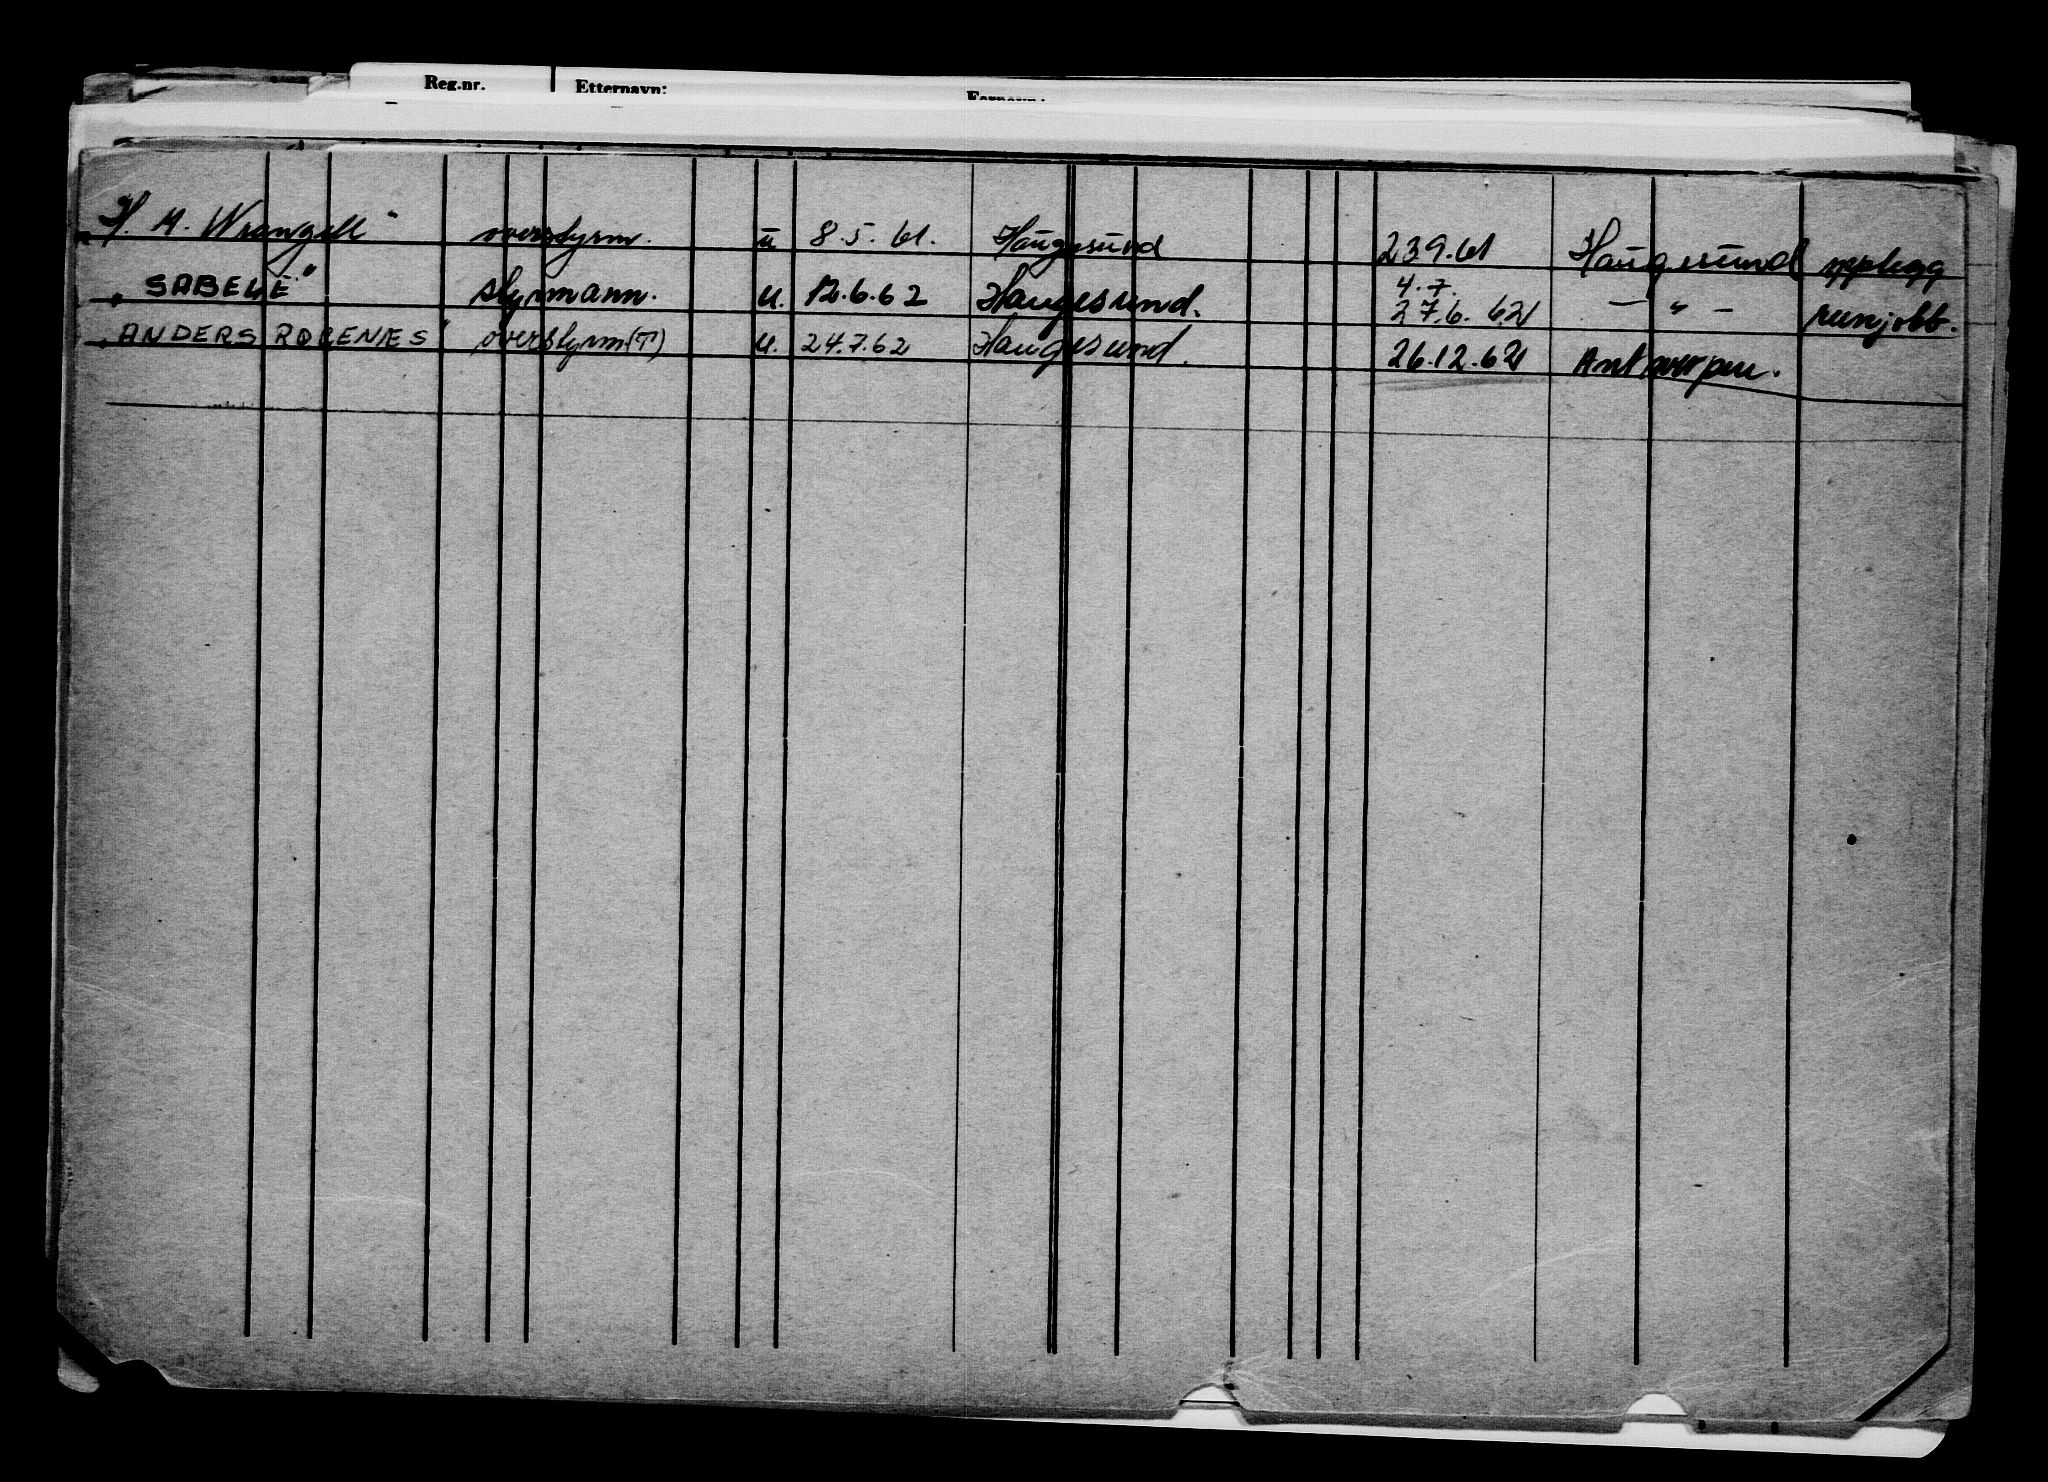 Reg.nr. Etternavn: Fornavn:
H. M. Wrangell" overstyrm. u 8.5.61. Haugesund 23.9.61 Haugesund opplegg
4.7.
"SABELLE" styrmann. u. 12.6.62 Haugesund. 27.6.62 — " — runjobb.
"ANDERS ROGENÆS" overstyrm(T) u. 24.7.62 Haugesund. 26.12.62 Antwerpen.